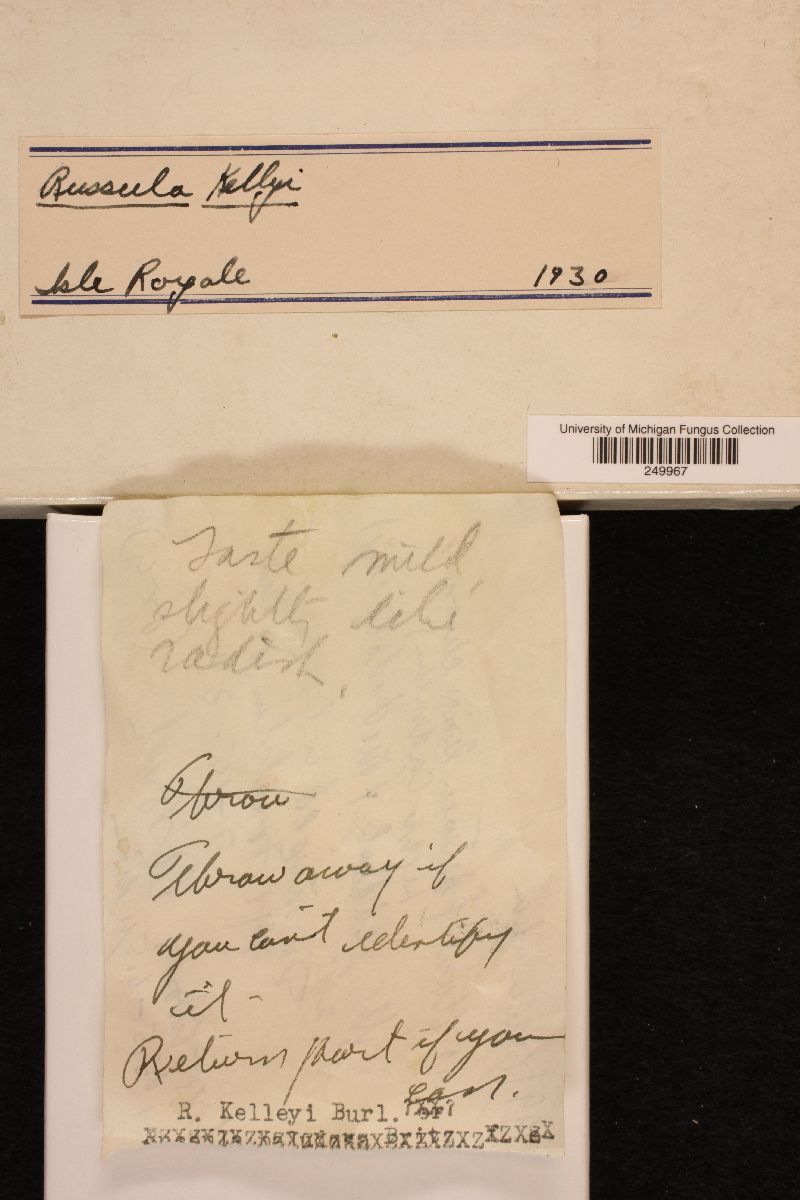 Russula Kellyi
Isle Royale 1930
University of Michigan Fungus Collection
249967
Taste mild,
slightly like
radish.
Throw
Throw away if
you can't identify
it -
Return part if you
can.
R. Kelleyi Burl.